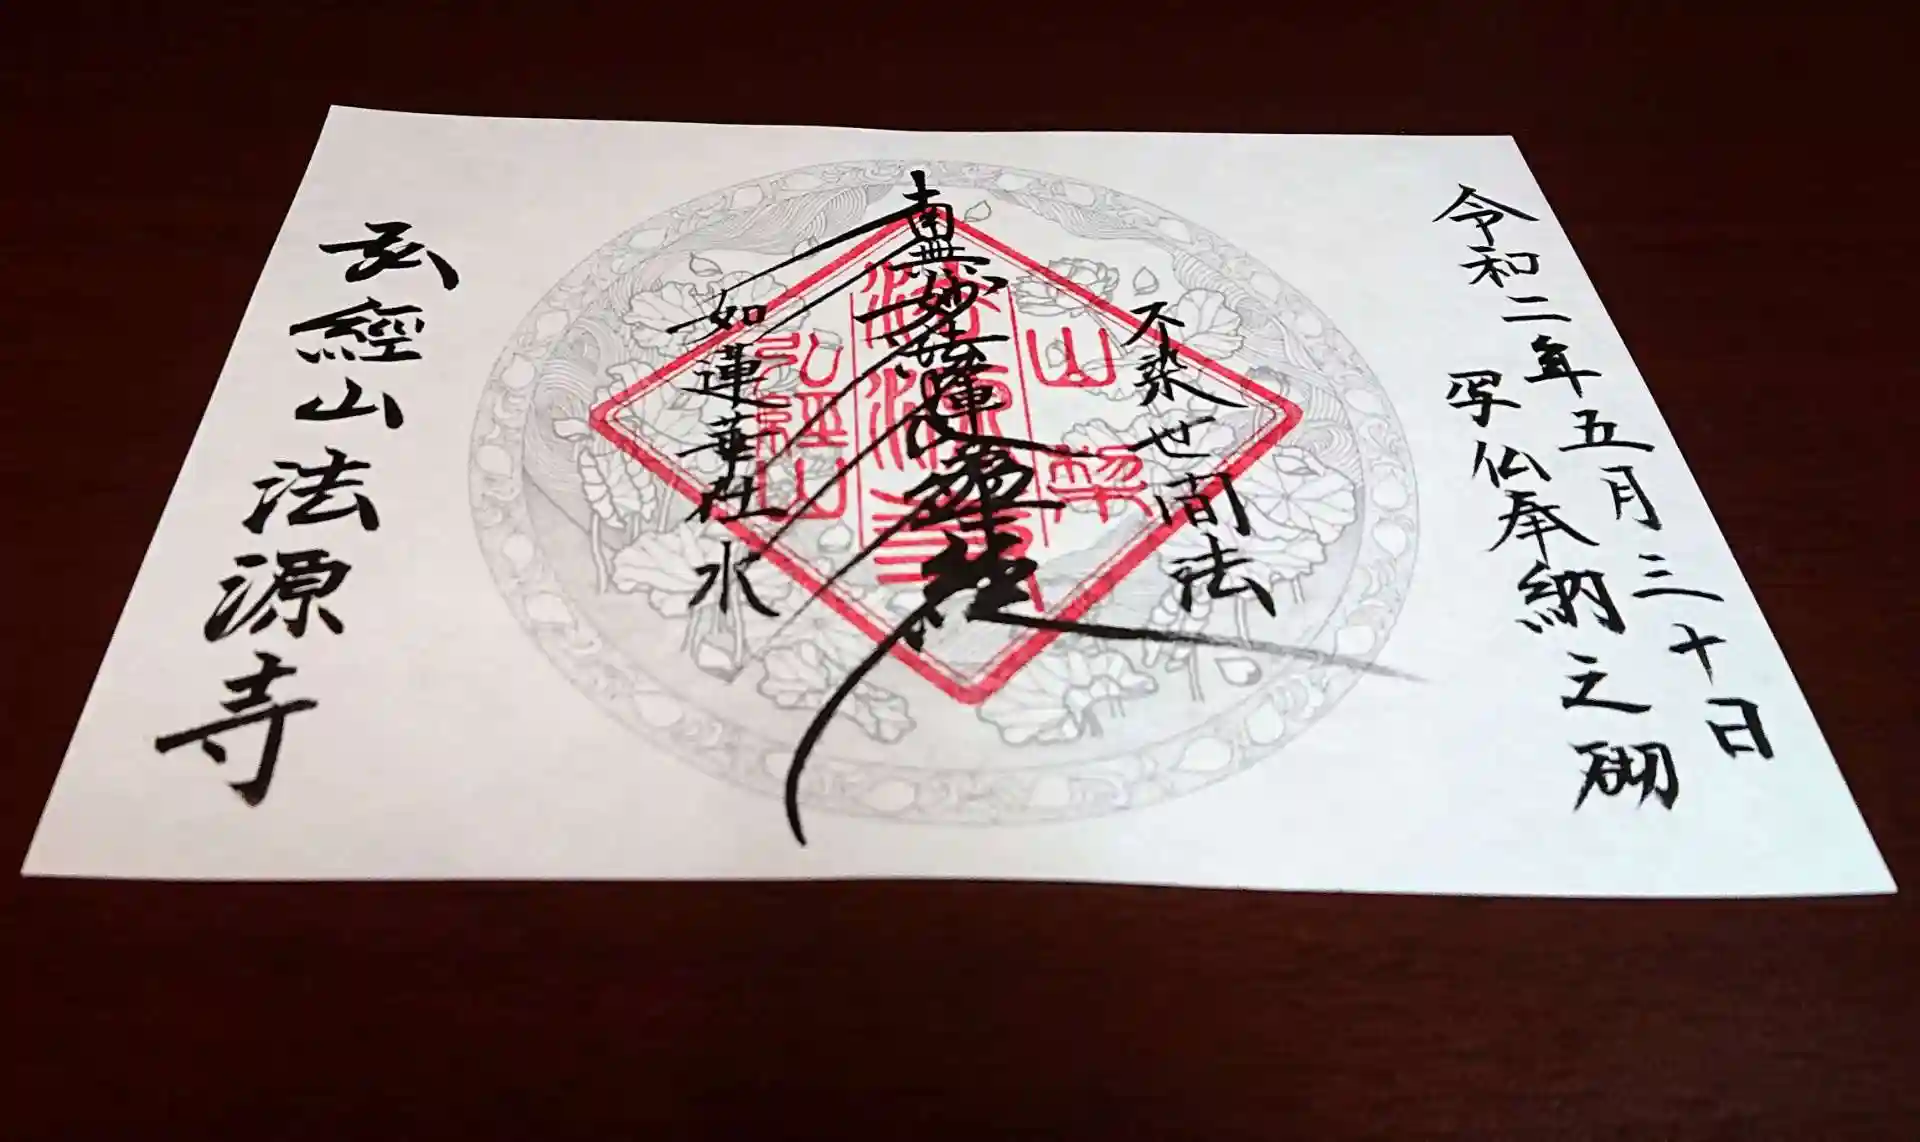 令和二年五月三十日
写仏奉納之砌
不染世間法
南無妙法蓮華経
如蓮華在水
弘經山法源寺
山梨
法源寺
弘經山